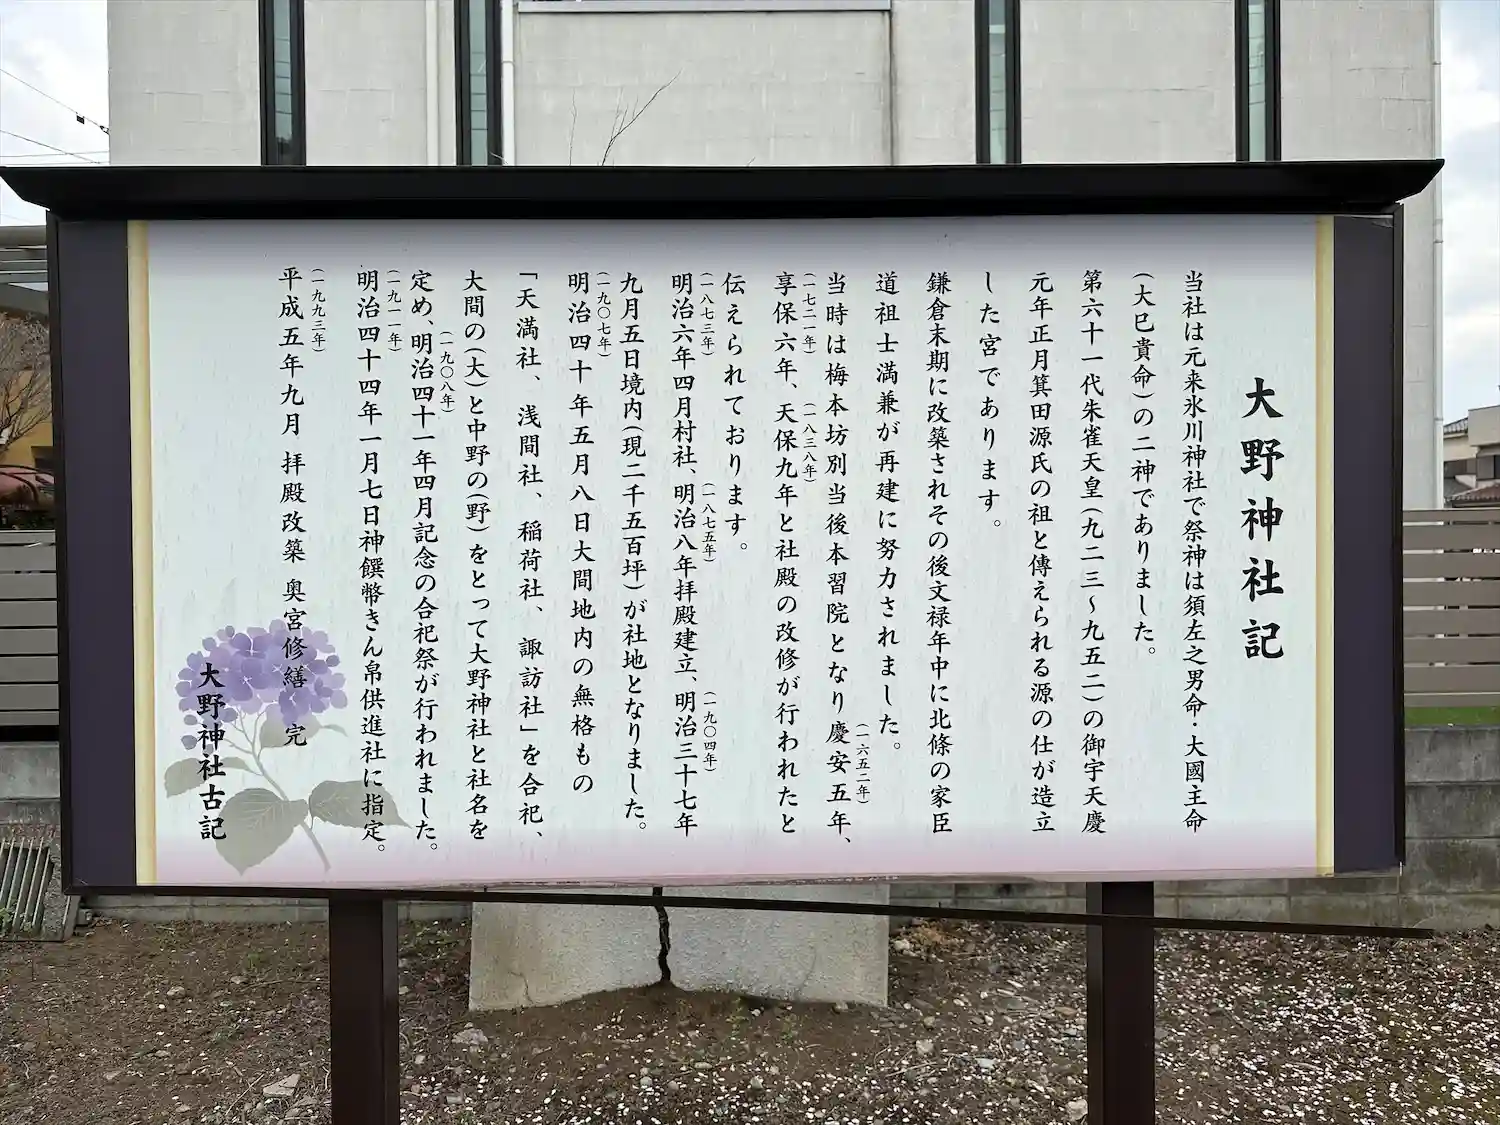 大野神社記
当社は元来氷川神社で祭神は須左之男命・大國主命
(大巳貴命)の二神でありました。
第六十一代朱雀天皇(九二三～九五二)の御宇天慶
元年正月箕田源氏の祖と傳えられる源の仕が造立
した宮であります。
鎌倉末期に改築されその後文禄年中に北條の家臣
道祖士満兼が再建に努力されました。
(一六五二年)
当時は梅本坊別当後本習院となり慶安五年、
(一七二一年) (一八三八年)
享保六年、天保九年と社殿の改修が行われたと
伝えられております。
(一八七三年) (一八七五年) (一九〇四年)
明治六年四月村社、明治八年拝殿建立、明治三十七年
九月五日境内(現二千五百坪)が社地となりました。
(一九〇七年)
明治四十年五月八日大間地内の無格もの
「天満社、浅間社、稲荷社、諏訪社」を合祀、
大間の(大)と中野の(野)をとって大野神社と社名を
(一九〇八年)
定め、明治四十一年四月記念の合祀祭が行われました。
(一九一一年)
明治四十四年一月七日神饌幣きん帛供進社に指定。
(一九九三年)
平成五年九月 拝殿改築 奥宮修繕 完
大野神社古記